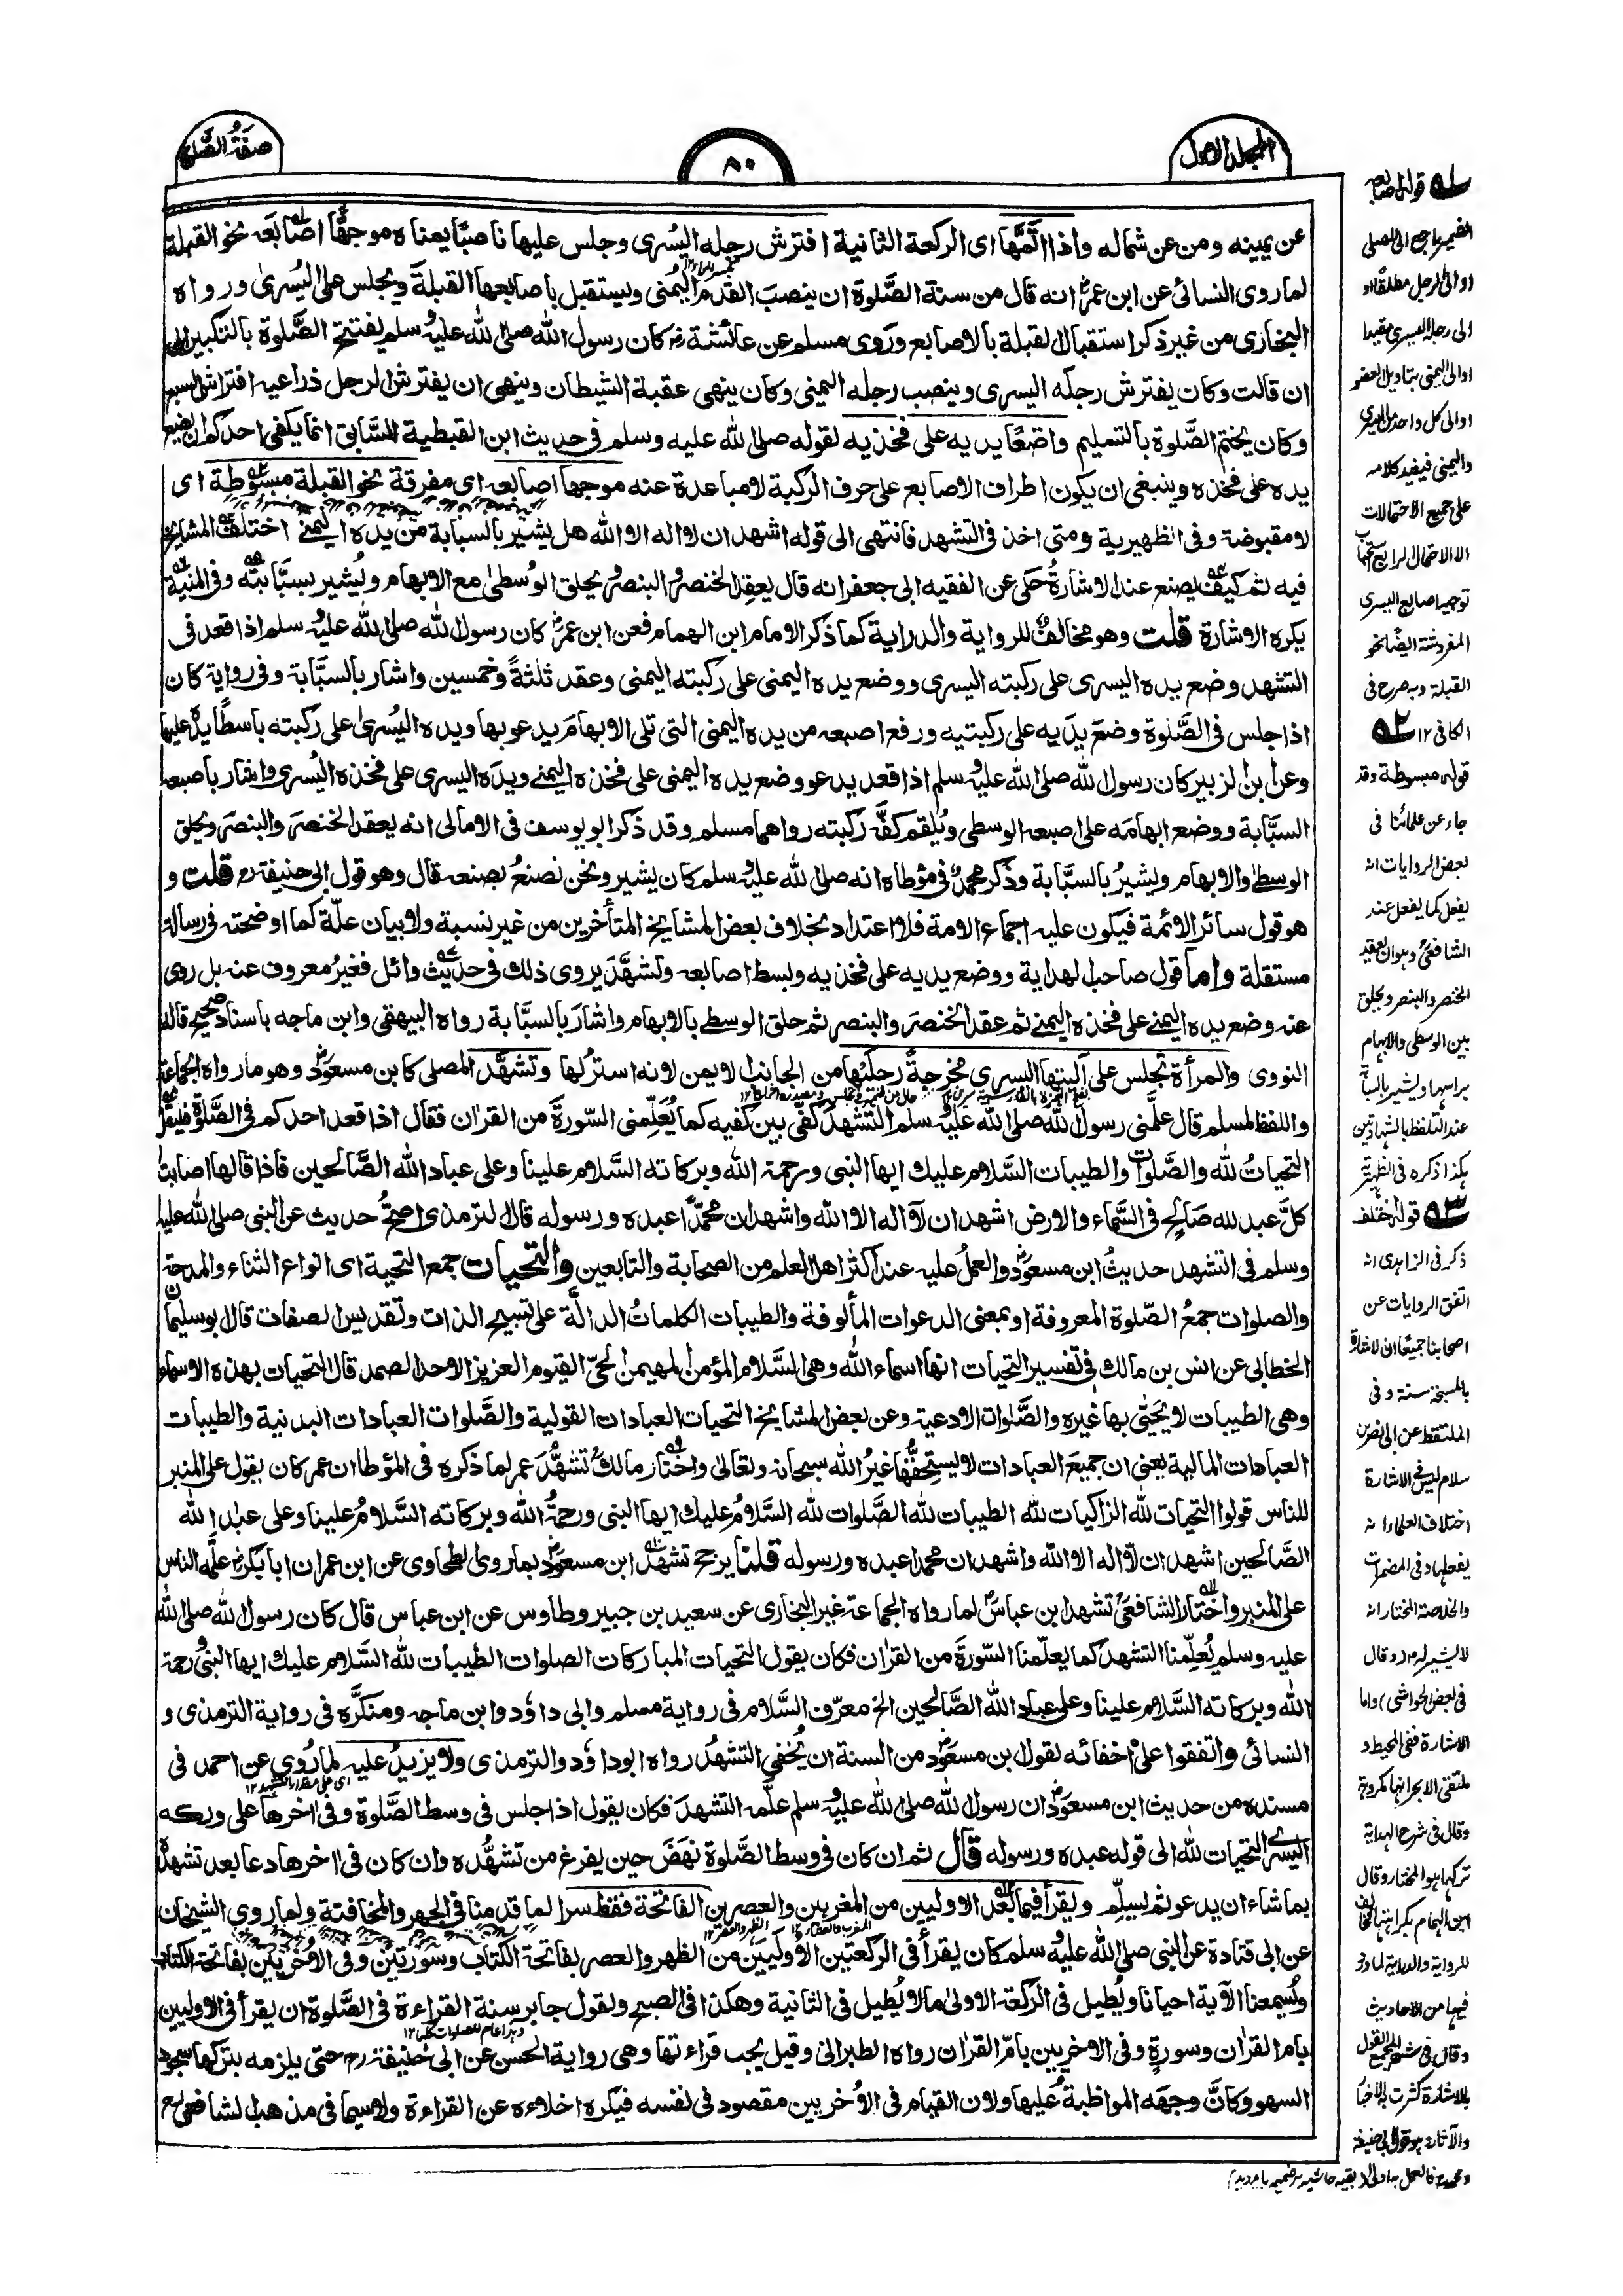 المجلد الاول
٨٠
صفة الصلوة
عن يمينه ومن عن شماله واذا اتمها اى الركعة الثانية افترش رجله اليسرى وجلس عليها ناصبا يمناه موجها اصابعه نحو القبلة
لما روى النسائى عن ابن عمر انه قال من سنة الصلوة ان ينصب القدم اليمنى ويستقبل باصابعها القبلة ويجلس على اليسرى ورواه
البخارى من غير ذكر استقبال القبلة بالاصابع وروى مسلم عن عائشة رض كان رسول الله صلى الله عليه وسلم يفتتح الصلوة بالتكبير الى
ان قالت وكان يفترش رجله اليسرى وينصب رجله اليمنى وكان ينهى عقبة الشيطان وينهى ان يفترش الرجل ذراعيه افتراش السبع
وكان يختم الصلوة بالتسليم واضعا يديه على فخذيه لقوله صلى الله عليه وسلم فى حديث ابن القبطية السابق انما يكفى احدكم ان يضع
يده على فخذه وينبغى ان يكون اطراف الاصابع على حرف الركبة لا مباعدة عنه موجها اصابعه اى مفرقة نحو القبلة مبسوطة اى
لا مقبوضة وفى الظهيرية ومتى اخذ فى التشهد فانتهى الى قوله اشهد ان لا اله الا الله هل يشير بالسبابة من يده اليمنى اختلف المشايخ
فيه ثم كيف يصنع عند الاشارة حكى عن الفقيه ابى جعفر انه قال يعقد الخنصر والبنصر ويحلق الوسطى مع الابهام ويشير بسبابته وفى المنية
يكره الاشارة قلت وهو مخالف للرواية والدراية كما ذكر الامام ابن الهمام فعن ابن عمر كان رسول الله صلى الله عليه وسلم اذا قعد فى
التشهد وضع يده اليسرى على ركبته اليسرى ووضع يده اليمنى على ركبته اليمنى وعقد ثلثة وخمسين واشار بالسبابة وفى رواية كان
اذا جلس فى الصلوة وضع يديه على ركبتيه ورفع اصبعه من يده اليمنى التى تلى الابهام يدعو بها ويده اليسرى على ركبته باسطا يده عليها
وعن ابن الزبير كان رسول الله صلى الله عليه وسلم اذا قعد يدعو وضع يده اليمنى على فخذه اليمنى ويده اليسرى على فخذه اليسرى واشار باصبعه
السبابة ووضع ابهامه على اصبعه الوسطى ويلقم كفه ركبته رواهما مسلم وقد ذكر ابو يوسف فى الامالى انه يعقد الخنصر والبنصر ويحلق
الوسطى والابهام ويشير بالسبابة وذكر محمد فى مؤطاه انه صلى الله عليه وسلم كان يشير ونحن نصنع بصنعه قال وهو قول ابى حنيفة قلت و
هو قول سائر الائمة فيكون عليه اجماع الامة فلا اعتداد بخلاف بعض المشايخ المتأخرين من غير نسبة ولا بيان علة كما اوضحته فى رسالة
مستقلة واما قول صاحب الهداية ووضع يديه على فخذيه وبسط اصابعه وتشهد يروى ذلك فى حديث وائل فغير معروف عنه بل روى
عنه وضع يده اليمنى على فخذه اليمنى ثم عقد الخنصر والبنصر ثم حلق الوسطى بالابهام واشار بالسبابة رواه البيهقى وابن ماجه باسناد صحيح قاله
النووى والمرأة تجلس على اليتها اليسرى مخرجة رجليها من الجانب الايمن لانه استر لها وتشهد المصلى كابن مسعود وهو ما رواه الجماعة
واللفظ لمسلم قال علمنى رسول الله صلى الله عليه وسلم التشهد كفى بين كفيه كما يعلمنى السورة من القران فقال اذا قعد احدكم فى الصلوة فليقل
التحيات لله والصلوات والطيبات السلام عليك ايها النبى ورحمة الله وبركاته السلام علينا وعلى عباد الله الصالحين فاذا قالها اصابت
كل عبد لله صالح فى السماء والارض اشهد ان لا اله الا الله واشهد ان محمدا عبده ورسوله قال الترمذى اصح حديث عن النبى صلى الله عليه
وسلم فى التشهد حديث ابن مسعود والعمل عليه عند اكثر اهل العلم من الصحابة والتابعين والتحيات جمع التحية اى انواع الثناء والمدحة
والصلوات جمع الصلوة المعروفة او بمعنى الدعوات المألوفة والطيبات الكلمات الدالة على تسبيح الذات وتقديس الصفات قال ابو سليمان
الخطابى عن انس بن مالك فى تفسير التحيات انها اسماء الله وهى السلام المؤمن المهيمن الحى القيوم العزيز الاحد الصمد قال التحيات بهذه الاسماء
وهى الطيبات لا يحيى بها غيره والصلوات الادعية وعن بعض المشايخ التحيات العبادات القولية والصلوات العبادات البدنية والطيبات
العبادات المالية يعنى ان جميع العبادات لا يستحقها غير الله سبحانه وتعالى واختار مالك تشهد عمر لما ذكره فى المؤطا ان عمر كان يقول على المنبر
للناس قولوا التحيات لله الزاكيات لله الطيبات لله الصلوات لله السلام عليك ايها النبى ورحمة الله وبركاته السلام علينا وعلى عباد الله
الصالحين اشهد ان لا اله الا الله واشهد ان محمدا عبده ورسوله قلنا يرجح تشهد ابن مسعود بما روى الطحاوى عن ابن عمر ان ابا بكر علمه الناس
على المنبر واختار الشافعى تشهد ابن عباس لما رواه الجماعة غير البخارى عن سعيد بن جبير وطاوس عن ابن عباس قال كان رسول الله صلى الله
عليه وسلم يعلمنا التشهد كما يعلمنا السورة من القران فكان يقول التحيات المباركات الصلوات الطيبات لله السلام عليك ايها النبى ورحمة
الله وبركاته السلام علينا وعلى عباد الله الصالحين الخ معرف السلام فى رواية مسلم وابى داؤد وابن ماجه ومنكره فى رواية الترمذى و
النسائى واتفقوا على اخفائه لقول ابن مسعود من السنة ان يخفى التشهد رواه ابوداؤد والترمذى ولا يزيد عليه لما روى عن احمد فى
مسنده من حديث ابن مسعود ان رسول الله صلى الله عليه وسلم علمه التشهد فكان يقول اذا جلس فى وسط الصلوة وفى اخرها على وركه
اليسرى التحيات لله الى قوله عبده ورسوله قال ثم ان كان فى وسط الصلوة نهض حين يفرغ من تشهده وان كان فى اخرها دعا بعد تشهده
بما شاء ان يدعو ثم يسلم ويقرأ فيما بعد الاوليين من المغربين والعصرين الفاتحة فقط سرا لما قدمنا فى الجهر والمخافتة ولما روى الشيخان
عن ابى قتادة عن النبى صلى الله عليه وسلم كان يقرأ فى الركعتين الاوليين من الظهر والعصر بفاتحة الكتاب وسورتين وفى الاخريين بفاتحة الكتاب
ويسمعنا الآية احيانا ويطيل فى الركعة الاولى مالا يطيل فى الثانية وهكذا فى الصبح ولقول جابر سنة القراءة فى الصلوة ان يقرأ فى الاوليين
بام القران وسورة وفى الاخريين بام القران رواه الطبرانى وقيل يجب قراءتها وهى رواية الحسن عن ابى حنيفة رح حتى يلزمه بتركها سجود
السهو وكان وجهه المواظبة عليها ولان القيام فى الاخريين مقصود فى نفسه فيكره اخلاءه عن القراءة ولا سيما فى مذهب الشافعى
قوله اصابعه
الضمير راجع الى المصلى
او الى الرجل مطلقا او
الى رجله اليسرى مقيدا
او الى اليمنى بتاويل العضو
او الى كل واحد من اليسرى
واليمنى فيفيد كلامه
على جميع الاحتمالات
الا الاحتمال الرابع
توجيه اصابع اليسرى
المفروشة ايضا نحو
القبلة وبه صرح فى
الكافى ١٢ ٥٢
قوله مبسوطة وقد
جاء عن علمائنا فى
بعض الروايات انه
يفعل كما يفعل عند
الشافعى وهو ان يعقد
الخنصر والبنصر ويحلق
بين الوسطى والابهام
براسهما ويشير بالسبابة
عند التلفظ بالشهادتين
هكذا ذكره فى الظهيرية
٥٣ قوله اختلف
ذكر فى الزاهدى انه
اتفق الروايات عن
اصحابنا جميعا ان الاشارة
بالمسبحة سنة وفى
الملتقط عن ابى نصر بن
سلام ليس فى الاشارة
اختلاف العلماء انه
يفعلها وفى المضمرات
والخلاصة المختار انه
لا يشير وقال
فى بعض الحواشى واما
الاشارة ففى المحيط و
ملتقى الابحر انها مكروهة
وقال فى شرح الهداية
تركها هو المختار وقال
ابن الهمام بكراهتها مخالف
للرواية والدراية لما ورد
فيها من الاحاديث
وقال فى شرح المجمع القول
بالاشارة كثرت به الاخبار
والآثار وهو قول ابى حنيفة
ومحمد فالعمل به اولى (بقيه حاشيه بر ضميمه)